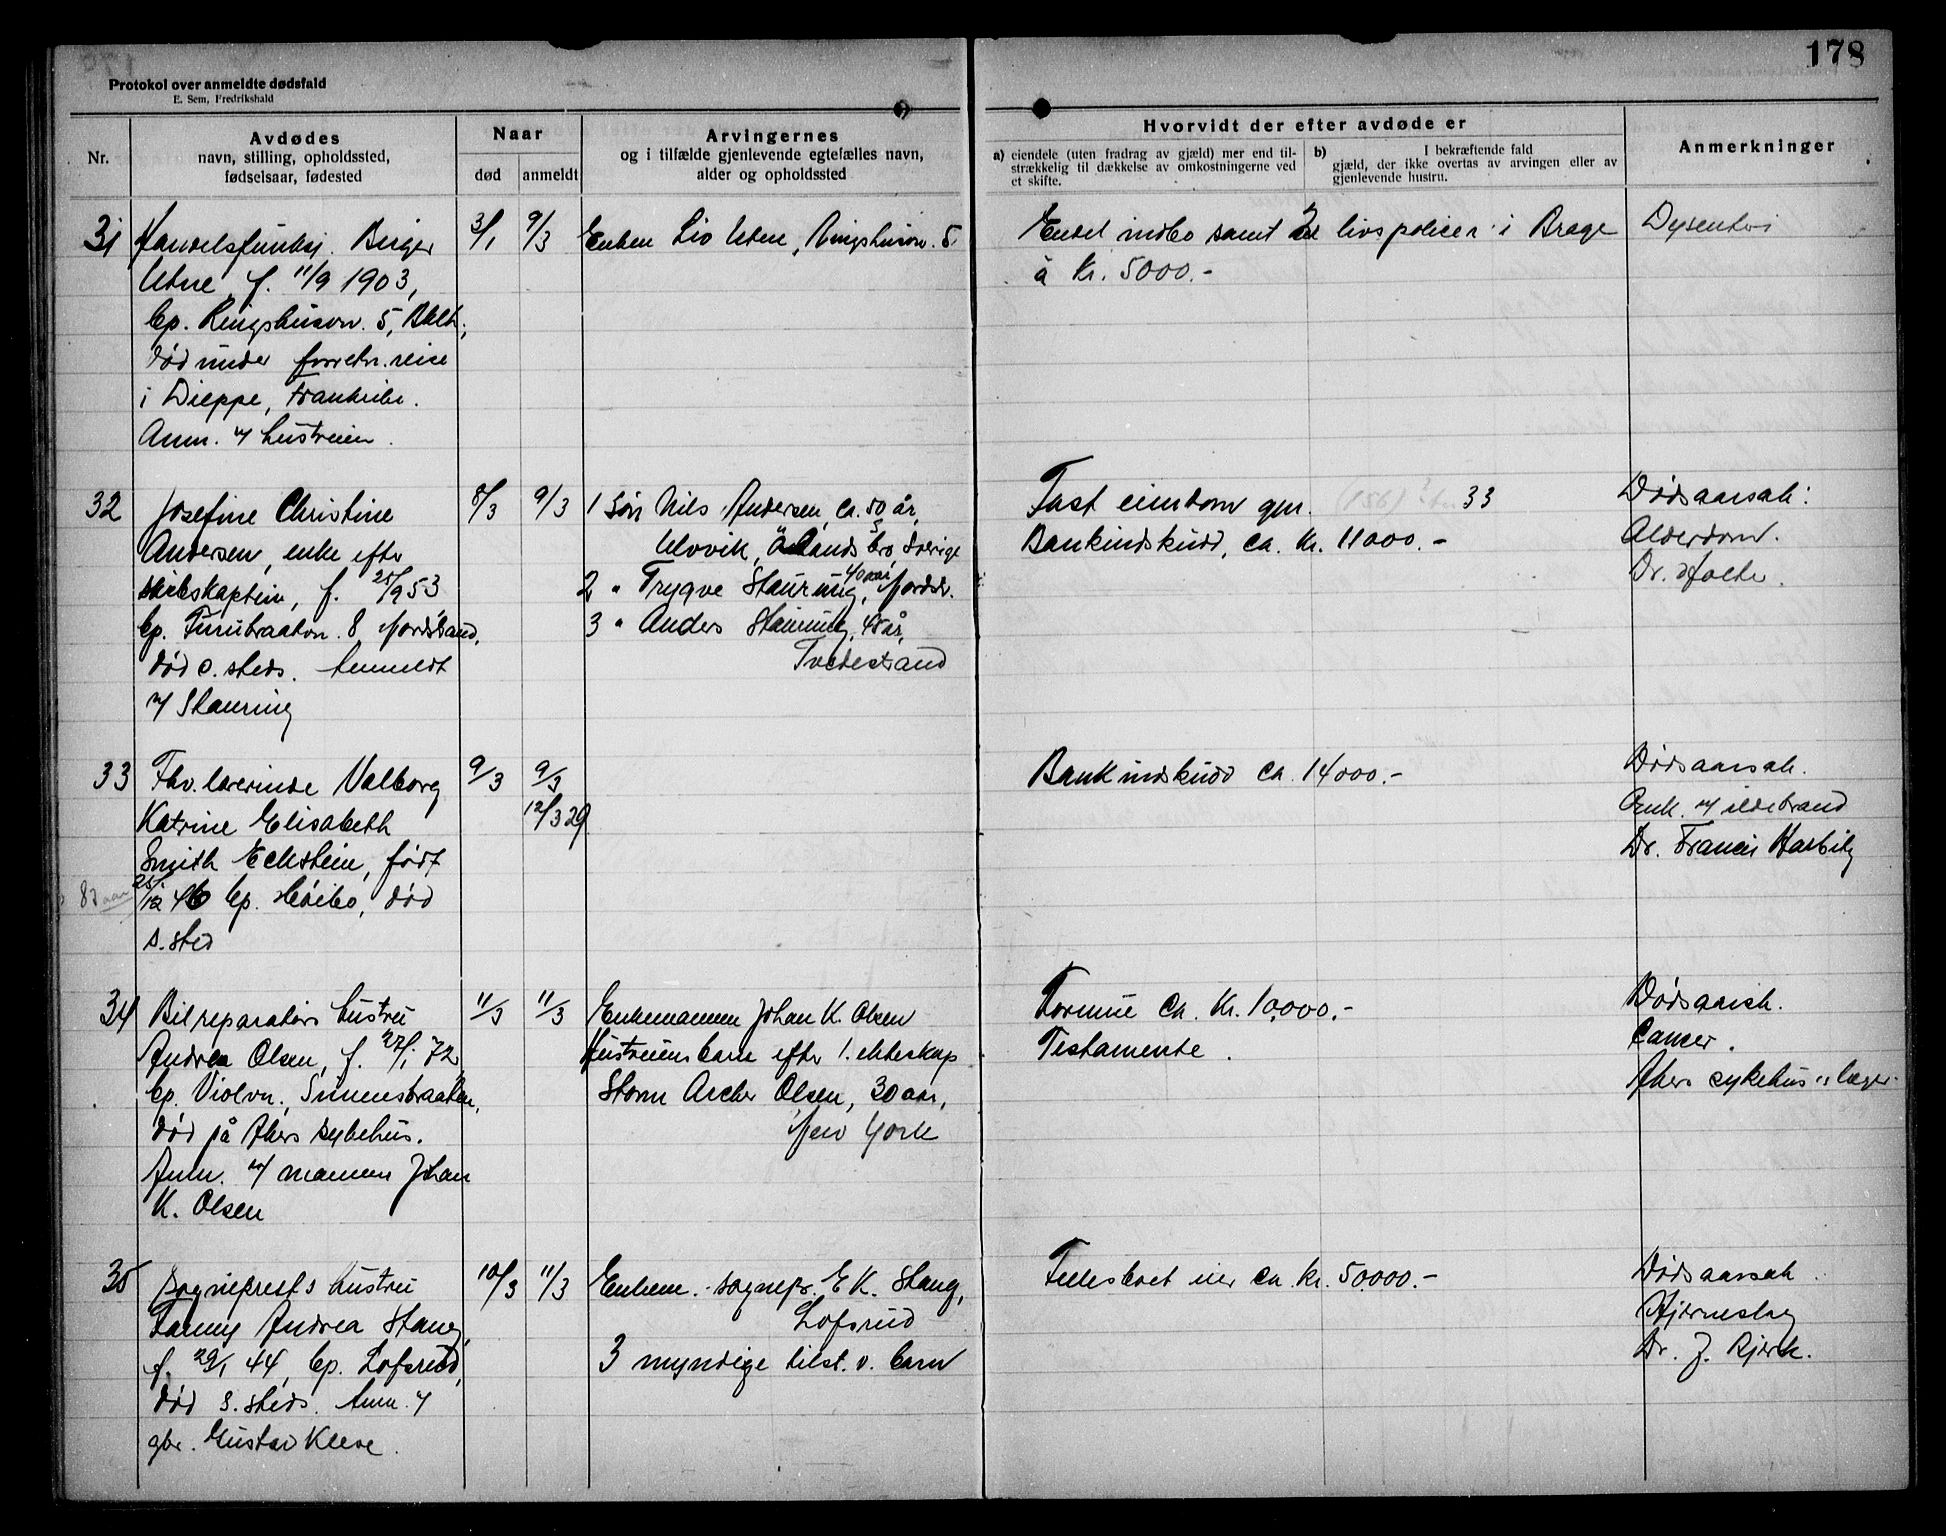 178
Protokol over anmeldte dødsfald
E. Sem, Fredrikshald
Nr.
Avdødes
navn, stilling, opholdssted,
fødselsaar, fødested
Naar
død
anmeldt
Arvingernes
og i tilfælde gjenlevende egtefælles navn,
alder og opholdssted
Hvorvidt der efter avdøde er
a) eiendele (uten fradrag av gjæld) mer end til-
strækkelig til dækkelse av omkostningerne ved
et skifte.
b) I bekræftende fald
gjæld, der ikke overtas av arvingen eller av
gjenlevende hustru.
Anmerkninger
31
Handelsfunksj. Birger
Utne, f. 11/9 1903,
bp. Ringshusvn. 5,
død under forretn. reise
i Dieppe, Frankrike.
Anm. v/ hustruen.
3/1
9/3
Enken Liv Utne, Ringshusvn. 5
Endel indbo samt 2 livspolicer i Brage
à Kr. 5000.-
Dysenteri
32
Josefine Christine
Andersen, enke efter
skibskaptein, f. 25/9 53
bp. Furubraatvn. 8, Nordstrand,
død s. steds. Anmeldt
v/ Stauring
8/3
9/3
1 Søn Nils Andersen, ca. 50 år,
Ulvvik, Sverige
2 " Trygve Stauring, 40 aar, Nordstr.
3 " Anders Stauring, 45 år,
Tvedestrand
Fast eiendom gnr. (156) 33
Bankindskudd, ca. Kr. 11000.-
Dødsaarsak:
Alderdom.
Dr. Holte.
33
Fhv. lærerinde Valborg
Katrine Elisabeth
Smith Eckstein, født
25/12 46 bp. Høibo, død
s. sted
83 aar
9/3
9/3
12/3 29
Bankindskudd ca. 14000.-
Dødsaarsak.
Ank. v/ ildebrand
Dr. Francis Harbitz
34
Bilreparatørs hustru
Andrea Olsen, f. 27/1 72
bp. Violvn., Simensbraaten,
død på Akers sykehus.
Anm. v/ mannen Johan
K. Olsen
11/3
11/3
Enkemannen Johan K. Olsen
Hustruens barn efter 1. ekteskap
Storm Archer Olsen, 30 aar,
New York
Formue ca. Kr. 10,000.-
Testamente.
Dødsaarsak.
Cancer.
Akers sykehus's læger.
35
Sogneprests hustru
Fanny Andrea Stang,
f. 29/1 44, bp. Lofsrud,
død s. steds. Anm. v/
gbr. Gustav Kleve.
10/3
11/3
Enkem. sognepr. E K. Stang,
Lofsrud
3 myndige tilst. v. barn
Fellesboet eier ca. kr. 50.000.-
Dødsaarsak.
Hjerneslag
Dr. J. Bjerk.